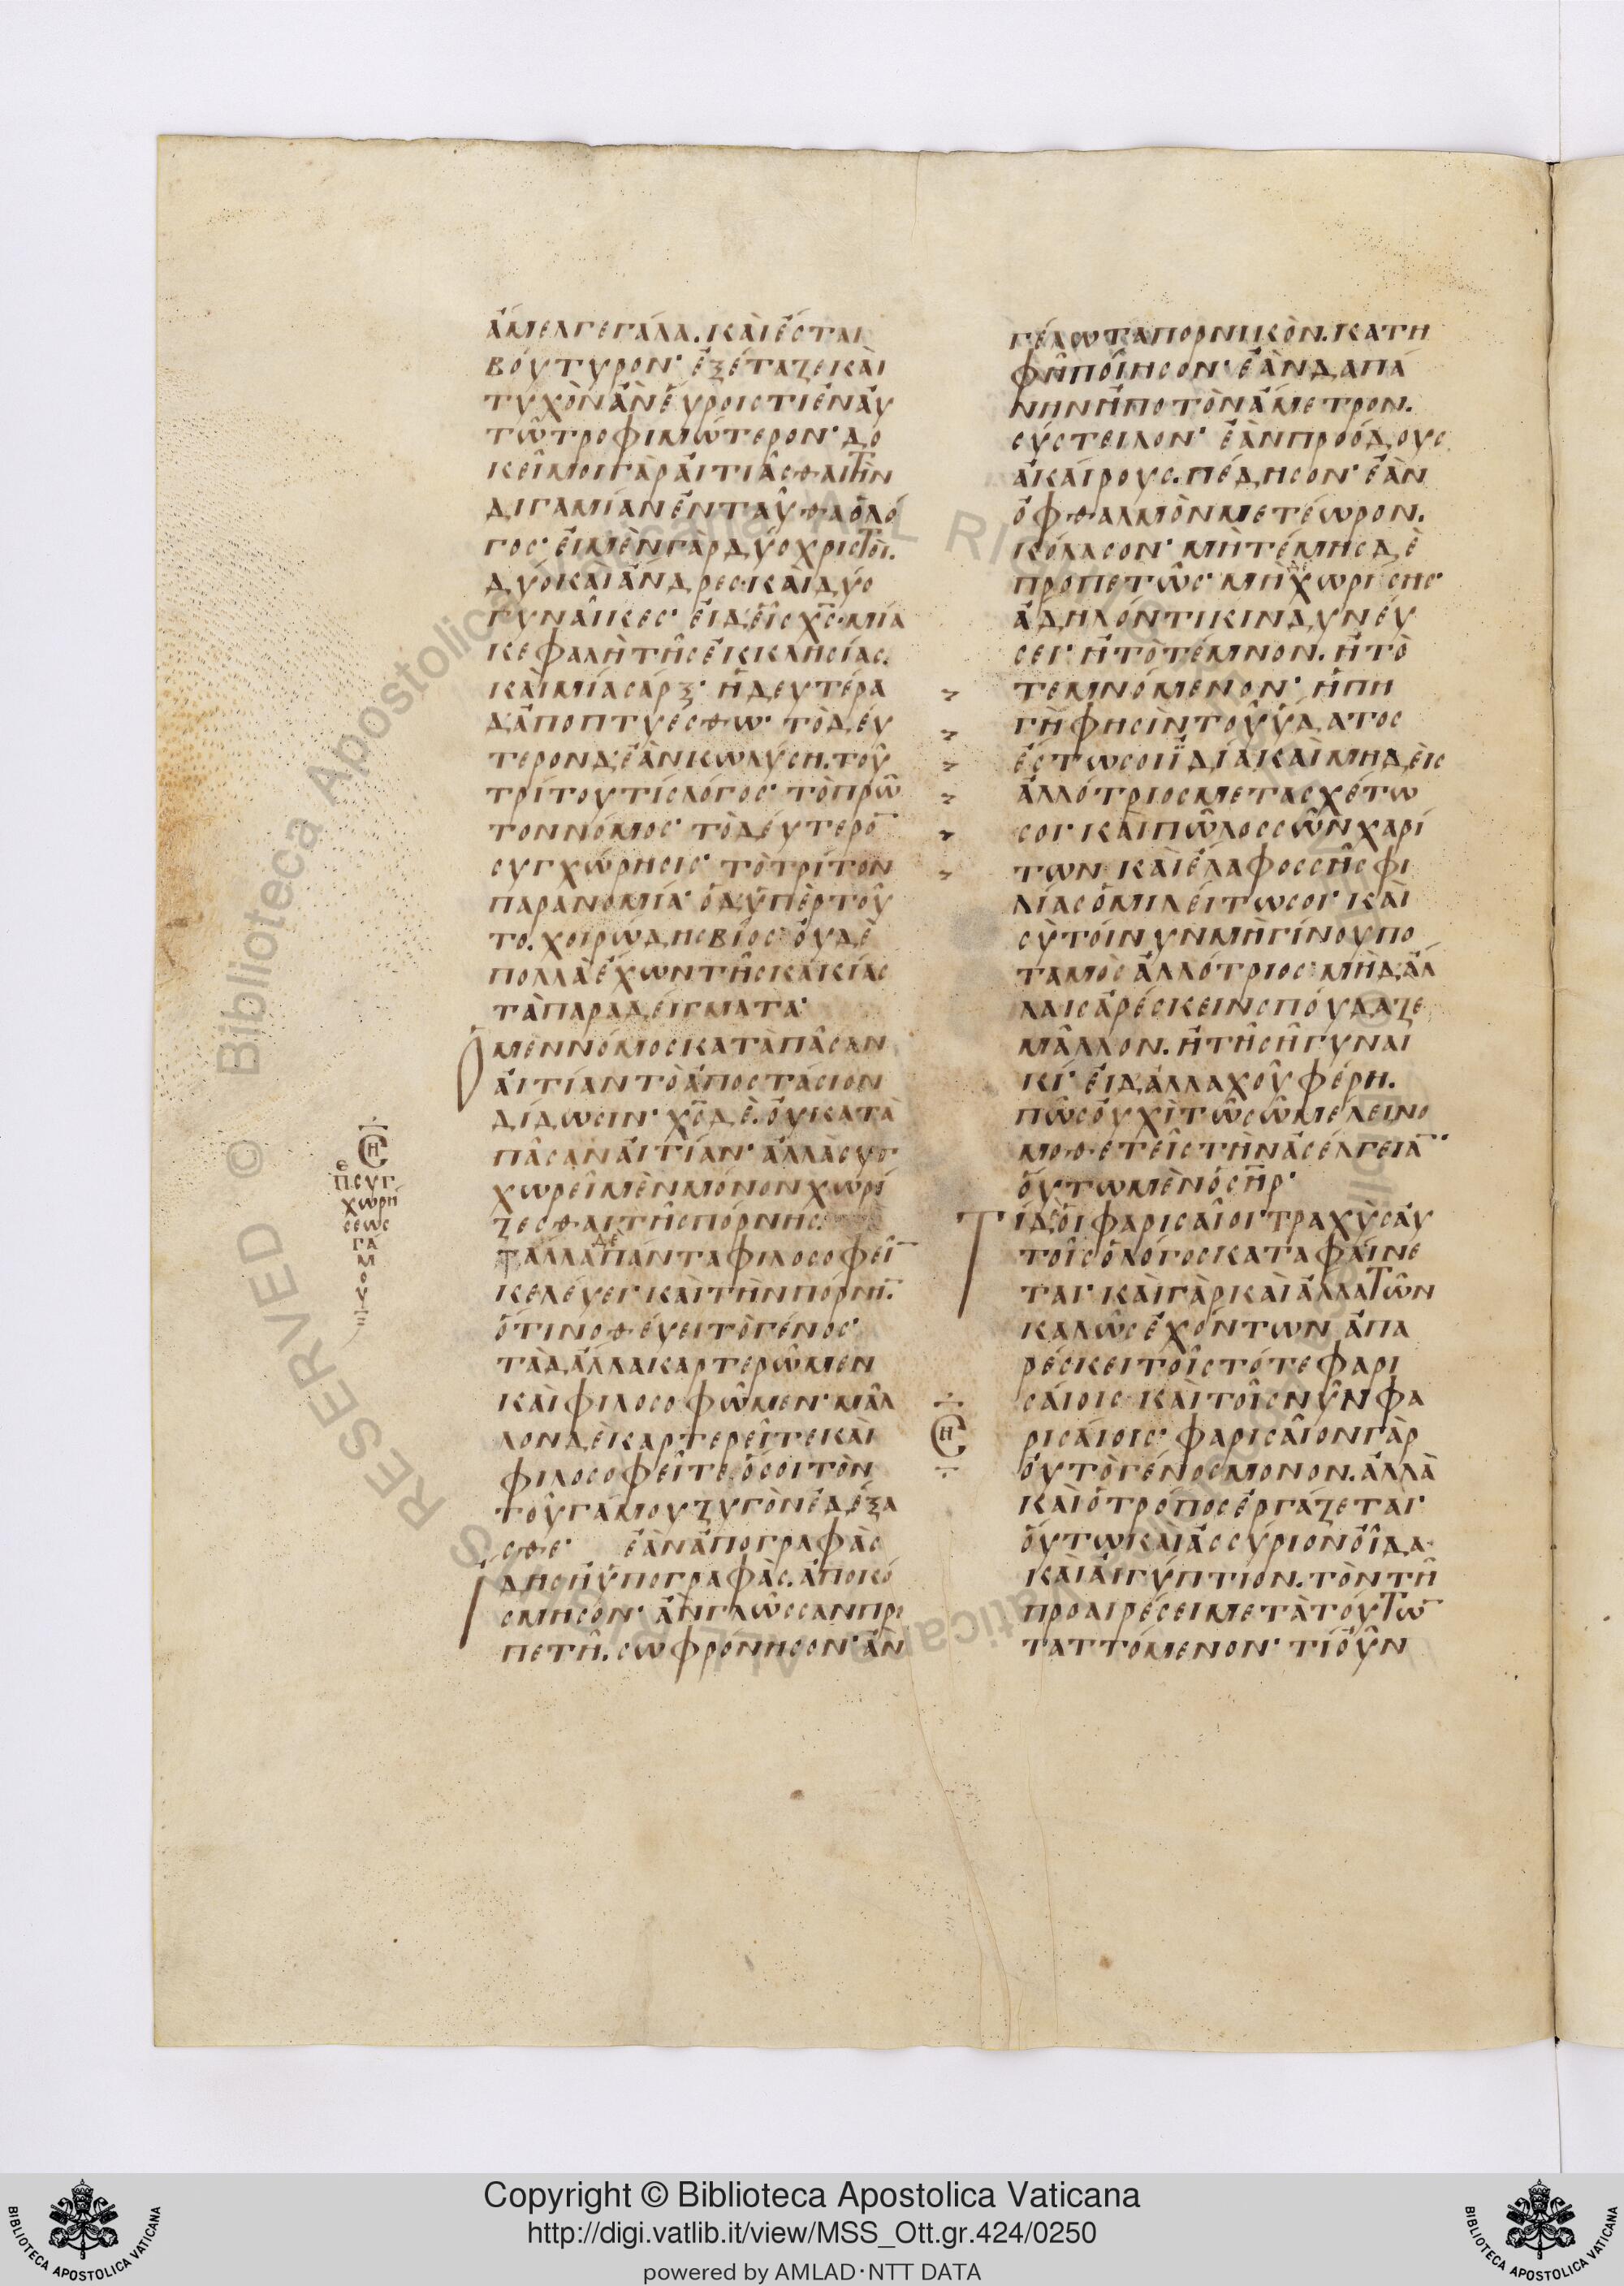 ἄμελγε γάλα. καὶ ἔσται
βούτυρον· ἐξέταζε καὶ
τυχὸν ἂν εὕροις τι ἐν αὐ
τῶ τροφιμώτερον· δο
κεῖ μοι γὰρ αἰτιᾶσθαι τὴν
διγαμίαν ἐνταῦθα ὁ λό
γος· εἰ μὲν γὰρ δύο χριστοὶ.
δύο καὶ ἄνδρες· καὶ δύο
γυναῖκες· εἰ δ εἷς χς· μία
κεφαλὴ τῆς ἐκκλησίας.
καὶ μία σάρξ· ἡ δευτέρα
δ ἀποπτυέσθω· τὸ δεύ
τερον δ ἐὰν κωλύση. τοῦ
τρίτου τίς λόγος· τὸ πρῶ
τον νόμος· τὸ δεύτερο̅
συγχώρησις· τὸ τρίτον
παρανομία· ὁ δ ὑπὲρ τοῦ
το. χοιρώδης βίος· οὐδὲ
πολλὰ ἔχων τῆς κακίας
τὰ παραδείγματα·
Ὁ μὲν νόμος κατὰ πᾶσαν
αἰτίαν τὸ ἀποστάσιον
δίδωσιν· χς δὲ. οὐ κατὰ
πᾶσαν αἰτίαν· ἀλλὰ συγ
χωρεῖ μὲν μόνον χωρί
ζεσθαι τῆς πόρνης·
τἄλλα δὲ πάντα φιλοσοφεῖ̅
κελέυει· καὶ τὴν πόρνη̅·
ὅτι νοθέυει τὸ γένος·
τὰ δ ἄλλα καρτερῶμεν
καὶ φιλοσοφῶμεν· μᾶλ
λον δὲ καρτερεῖτε καὶ
φιλοσοφεῖτε. ὅσοι τὸν
τοῦ γάμου ζυγὸν ἐδέξα
σθε· ἐὰν ἀπογραφὰς
ἴδης ἢ ὑπογραφὰς. ἀποκό
σμησον· ἂν γλῶσσαν προ
πετῆ. σωφρόνησον· ἂν
ση
περ συγ
χωρή
σεως
γά
μ
ο
υ
γέλωτα πορνικὸν. κατη
φῆ ποίησον· ἐὰν δαπά
νην ἢ ποτὸν ἄμετρον.
σύστειλον· ἐὰν προόδους
ἀκαίρους. πέδησον· ἐὰν
ὀφθαλμὸν μετέωρον.
κόλασον· μὴ τέμης δὲ
προπετῶς· μὴ δὲ χωρίσης·
ἄδηλον τι κινδυνεύ
σει· ἢ τὸ τέμνον. ἢ τὸ
τεμνόμενον· ἡ πη
γὴ φησὶν τοῦ ὕδατος
ἔστω σοι ἰδία καὶ μηδεὶς
ἀλλότριος μετασχέτω
σοι· καὶ πῶλος σῶν χαρί
των· καὶ ἔλαφος σῆς φι
λίας ὁμιλείτω σοι· καὶ
σὺ τοίνυν μὴ γίνου πο
ταμὸς ἀλλότριος· μὴ δ ἄλ
λαις ἀρέσκειν σπόυδαζε
μᾶλλον. ἢ τῆ σῆ γυναι
κί· εἰ δ ἀλλαχοῦ φέρη.
πῶς οὐχὶ τῶ σῶ μέλει νο
μοθετεῖς τὴν ἀσέλγεια̅·
οὕτω μὲν ὁ σηρ·
Τί δ οἱ φαρισαῖοι· τραχὺς αὐ
τοῖς ὁ λόγος καταφάινε
ται· καὶ γὰρ καὶ ἄλλα τῶν
καλῶς ἐχόντων ἀπα
ρέσκει τοῖς τότε φαρι
σάιοις· καὶ τοῖς νῦν φα
ρισάιοις· φαρισαῖον γὰρ
οὐ τὸ γένος μόνον. ἀλλὰ
καὶ ὁ τρόπος ἐργάζεται·
οὕτω καὶ ἀσσύριον οἶδα·
καὶ αἰγύπτιον. τὸν τῆ
προαιρέσει μετὰ τούτω̅
ταττόμενον· τί οὖν
ση
Copyright © Biblioteca Apostolica Vaticana
http://digi.vatlib.it/view/MSS_Ott.gr.424/0250
powered by AMLAD·NTT DATA
BIBLIOTECA APOSTOLICA VATICANA
BIBLIOTECA APOSTOLICA VATICANA